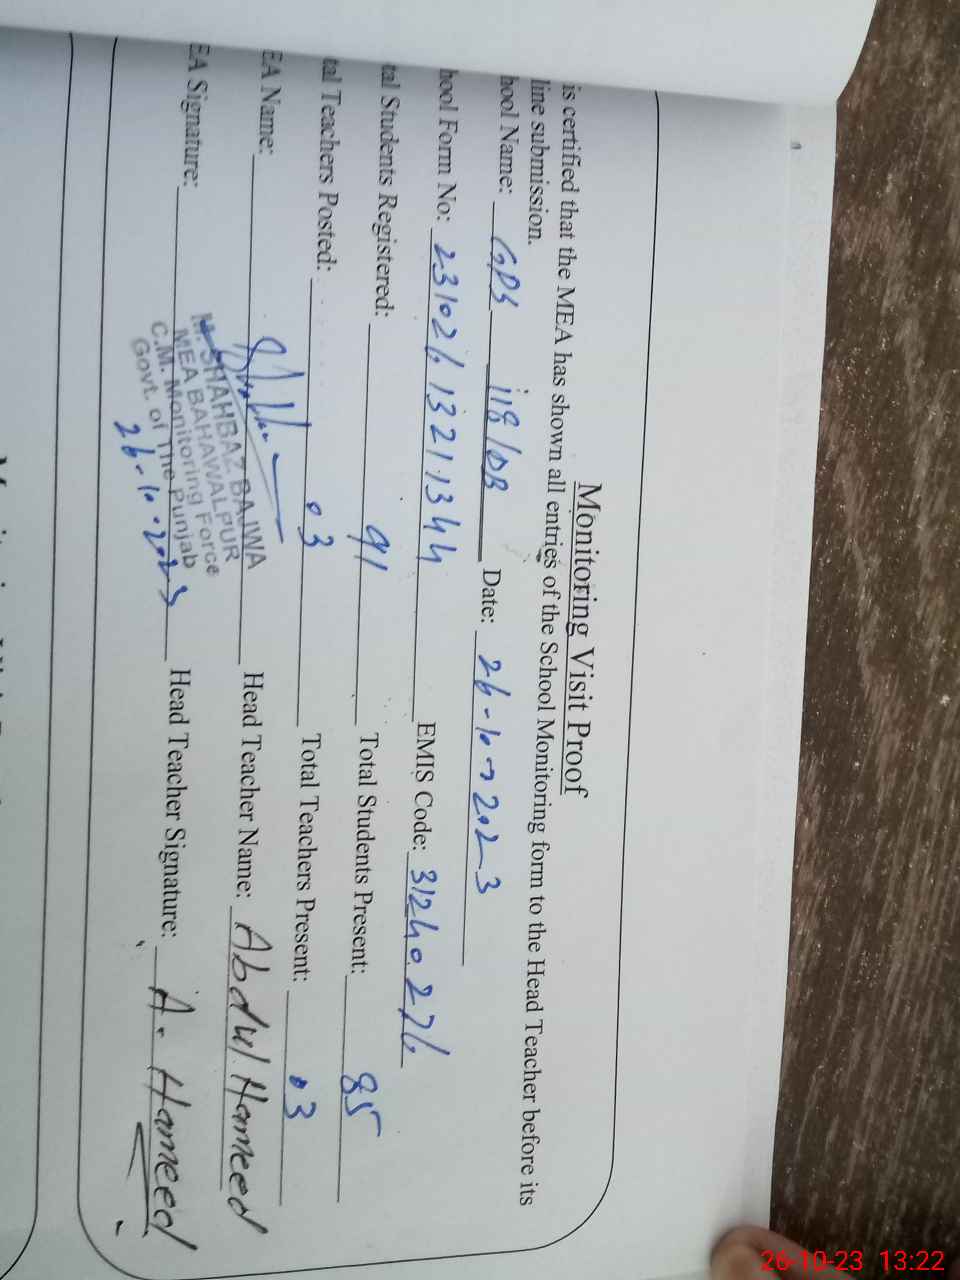 Monitoring Visit Proof
is certified that the MEA has shown all entries of the School Monitoring form to the Head Teacher before its
line submission.
hool Name: GPS 118/DB Date: 26-10-2023
hool Form No: 23102613211344 EMIS Code: 31240276
tal Students Registered: 91 Total Students Present: 85
tal Teachers Posted: 03 Total Teachers Present: 03
EA Name: Head Teacher Name: Abdul Hameed
EA Signature: Head Teacher Signature: A. Hameed
M. SHAHBAZ BAJWA
MEA BAHAWALPUR
C.M. Monitoring Force
Govt. of The Punjab
26-10-2023
26-10-23 13:22